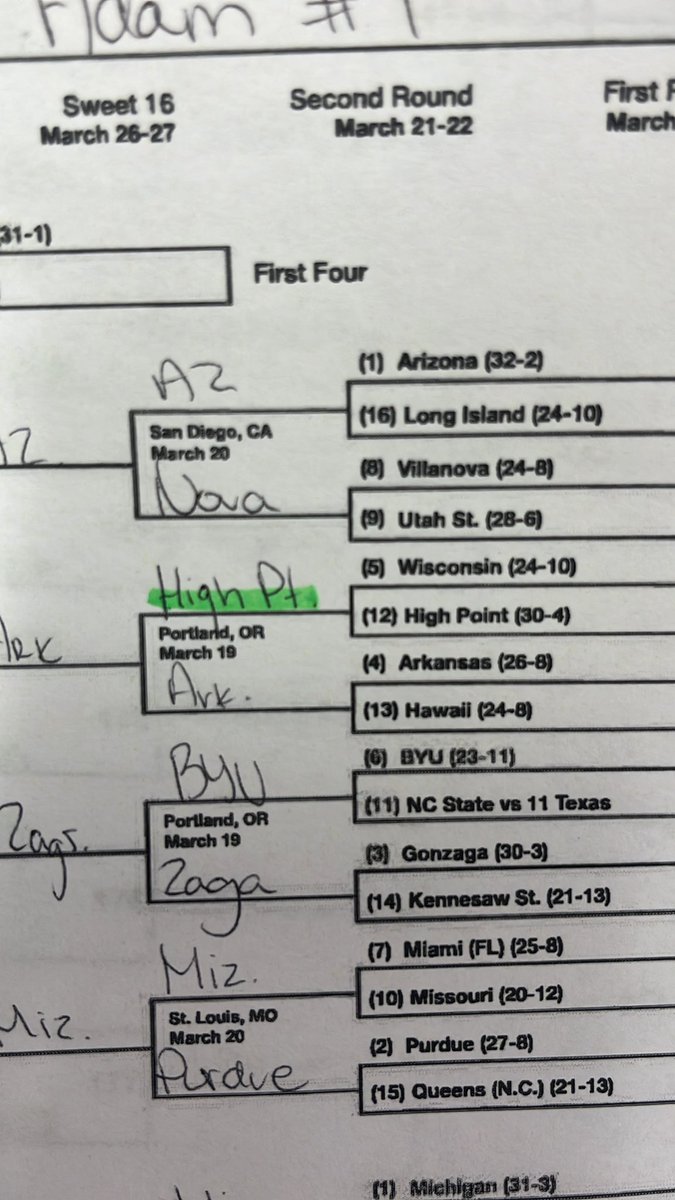 #1
Sweet 16
March 26-27
Second Round
March 21-22
First
March
31-1)
First Four
AZ
(1) Arizona (32-2)
San Diego, CA
March 20
(16) Long Island (24-10)
(8) Villanova (24-8)
Nova
(9) Utah St. (28-6)
High Pt.
(5) Wisconsin (24-10)
Portland, OR
March 19
(12) High Point (30-4)
Ark
(4) Arkansas (26-8)
Ark.
(13) Hawaii (24-8)
BYU
(6) BYU (23-11)
Portland, OR
March 19
(11) NC State vs 11 Texas
Zags.
(3) Gonzaga (30-3)
Zaga
(14) Kennesaw St. (21-13)
Miz.
(7) Miami (FL) (25-8)
St. Louis, MO
March 20
(10) Missouri (20-12)
Miz.
(2) Purdue (27-8)
Purdue
(15) Queens (N.C.) (21-13)
(1) Michigan (31-3)